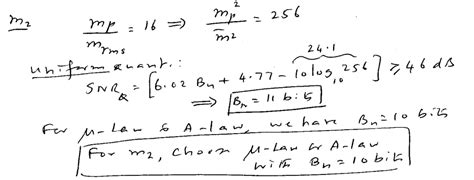 m₂ mp/mrms = 16 ⇒ mp²/m̅² = 256
Uniform quant.: 24.1
SNR_Q = [6.02 Bn + 4.77 − 10 log₁₀ 256] ≥ 46 dB
⇒ Bn = 11 bits
For μ-Law & A-law, we have Bn = 10 bits
For m₂, choose μ-Law or A-law
with Bn = 10 bits